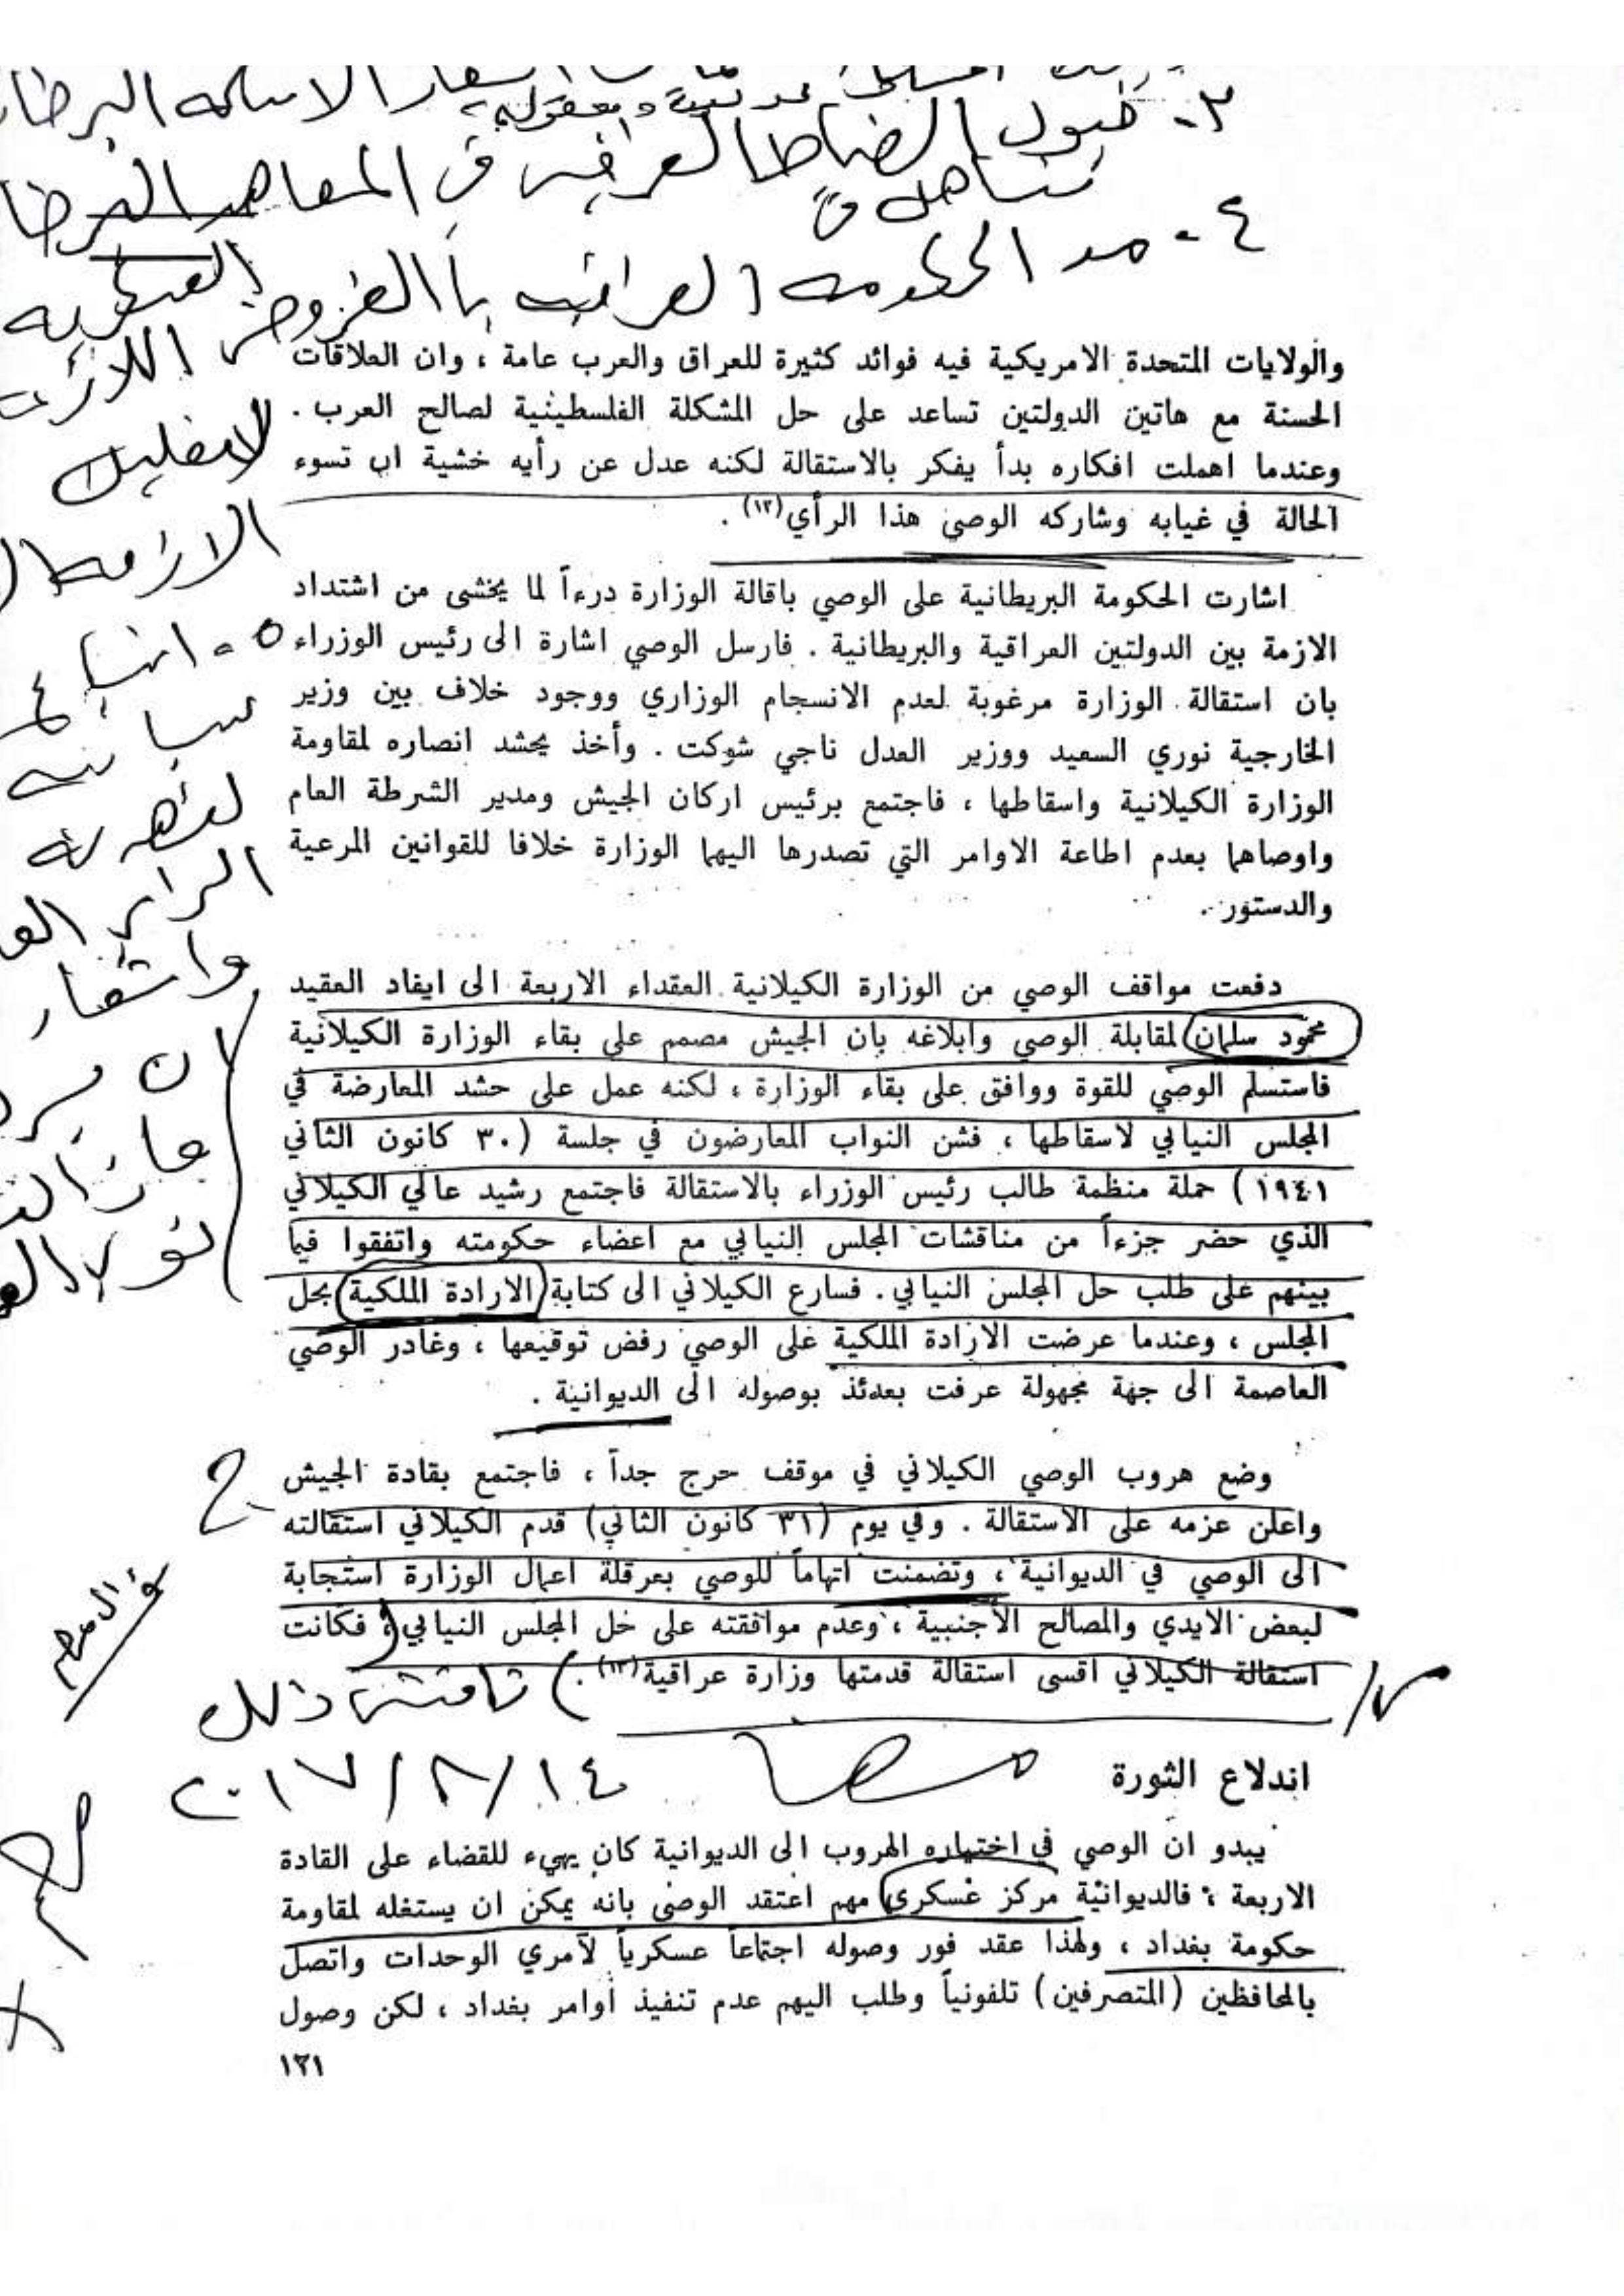 ٣- قبول الضباط العراقيين في المعاهد البرطا
٤- مد الحكومه العراقيه باالقروض اللازمة
العسكريه
والولايات المتحدة الامريكية فيه فوائد كثيرة للعراق والعرب عامة ، وان العلاقات
الحسنة مع هاتين الدولتين تساعد على حل المشكلة الفلسطينية لصالح العرب .
وعندما اهملت افكاره بدأ يفكر بالاستقالة لكنه عدل عن رأيه خشية ان تسوء
الحالة في غيابه وشاركه الوصي هذا الرأي(١٢) .
اشارت الحكومة البريطانية على الوصي باقالة الوزارة درءاً لما يخشى من اشتداد
الازمة بين الدولتين العراقية والبريطانية . فارسل الوصي اشارة الى رئيس الوزراء
بان استقالة الوزارة مرغوبة لعدم الانسجام الوزاري ووجود خلاف بين وزير
الخارجية نوري السعيد ووزير العدل ناجي شوكت . وأخذ يحشد انصاره لمقاومة
الوزارة الكيلانية واسقاطها ، فاجتمع برئيس اركان الجيش ومدير الشرطة العام
واوصاهما بعدم اطاعة الاوامر التي تصدرها اليهما الوزارة خلافا للقوانين المرعية
والدستور .
دفعت مواقف الوصي من الوزارة الكيلانية العقداء الاربعة الى ايفاد العقيد
محمود سلمان لمقابلة الوصي وابلاغه بان الجيش مصمم على بقاء الوزارة الكيلانية
فاستسلم الوصي للقوة ووافق على بقاء الوزارة ، لكنه عمل على حشد المعارضة في
المجلس النيابي لاسقاطها ، فشن النواب المعارضون في جلسة (٣٠ كانون الثاني
١٩٤١) حملة منظمة طالب رئيس الوزراء بالاستقالة فاجتمع رشيد عالي الكيلاني
الذي حضر جزءاً من مناقشات المجلس النيابي مع اعضاء حكومته واتفقوا فيما
بينهم على طلب حل المجلس النيابي . فسارع الكيلاني الى كتابة (الارادة الملكية) بحل
المجلس ، وعندما عرضت الارادة الملكية على الوصي رفض توقيعها ، وغادر الوصي
العاصمة الى جهة مجهولة عرفت بعدئذ بوصوله الى الديوانية .
وضع هروب الوصي الكيلاني في موقف حرج جداً ، فاجتمع بقادة الجيش
واعلن عزمه على الاستقالة . وفي يوم (٣١ كانون الثاني) قدم الكيلاني استقالته
الى الوصي في الديوانية ، وتضمنت اتهاماً للوصي بعرقلة اعمال الوزارة استجابة
لبعض الايدي والمصالح الاجنبية ، وعدم موافقته على حل المجلس النيابي ، فكانت
استقالة الكيلاني اقسى استقالة قدمتها وزارة عراقية(١٣) .
ناقش ذلك
٢٠١٧/٨/١٤
اندلاع الثورة
يبدو ان الوصي في اختياره الهروب الى الديوانية كان يهيء للقضاء على القادة
الاربعة ، فالديوانية مركز عسكري مهم اعتقد الوصي بانه يمكن ان يستغله لمقاومة
حكومة بغداد ، ولهذا عقد فور وصوله اجتماعاً عسكرياً لآمري الوحدات واتصل
بالمحافظين (المتصرفين) تلفونياً وطلب اليهم عدم تنفيذ أوامر بغداد ، لكن وصول
١٢١